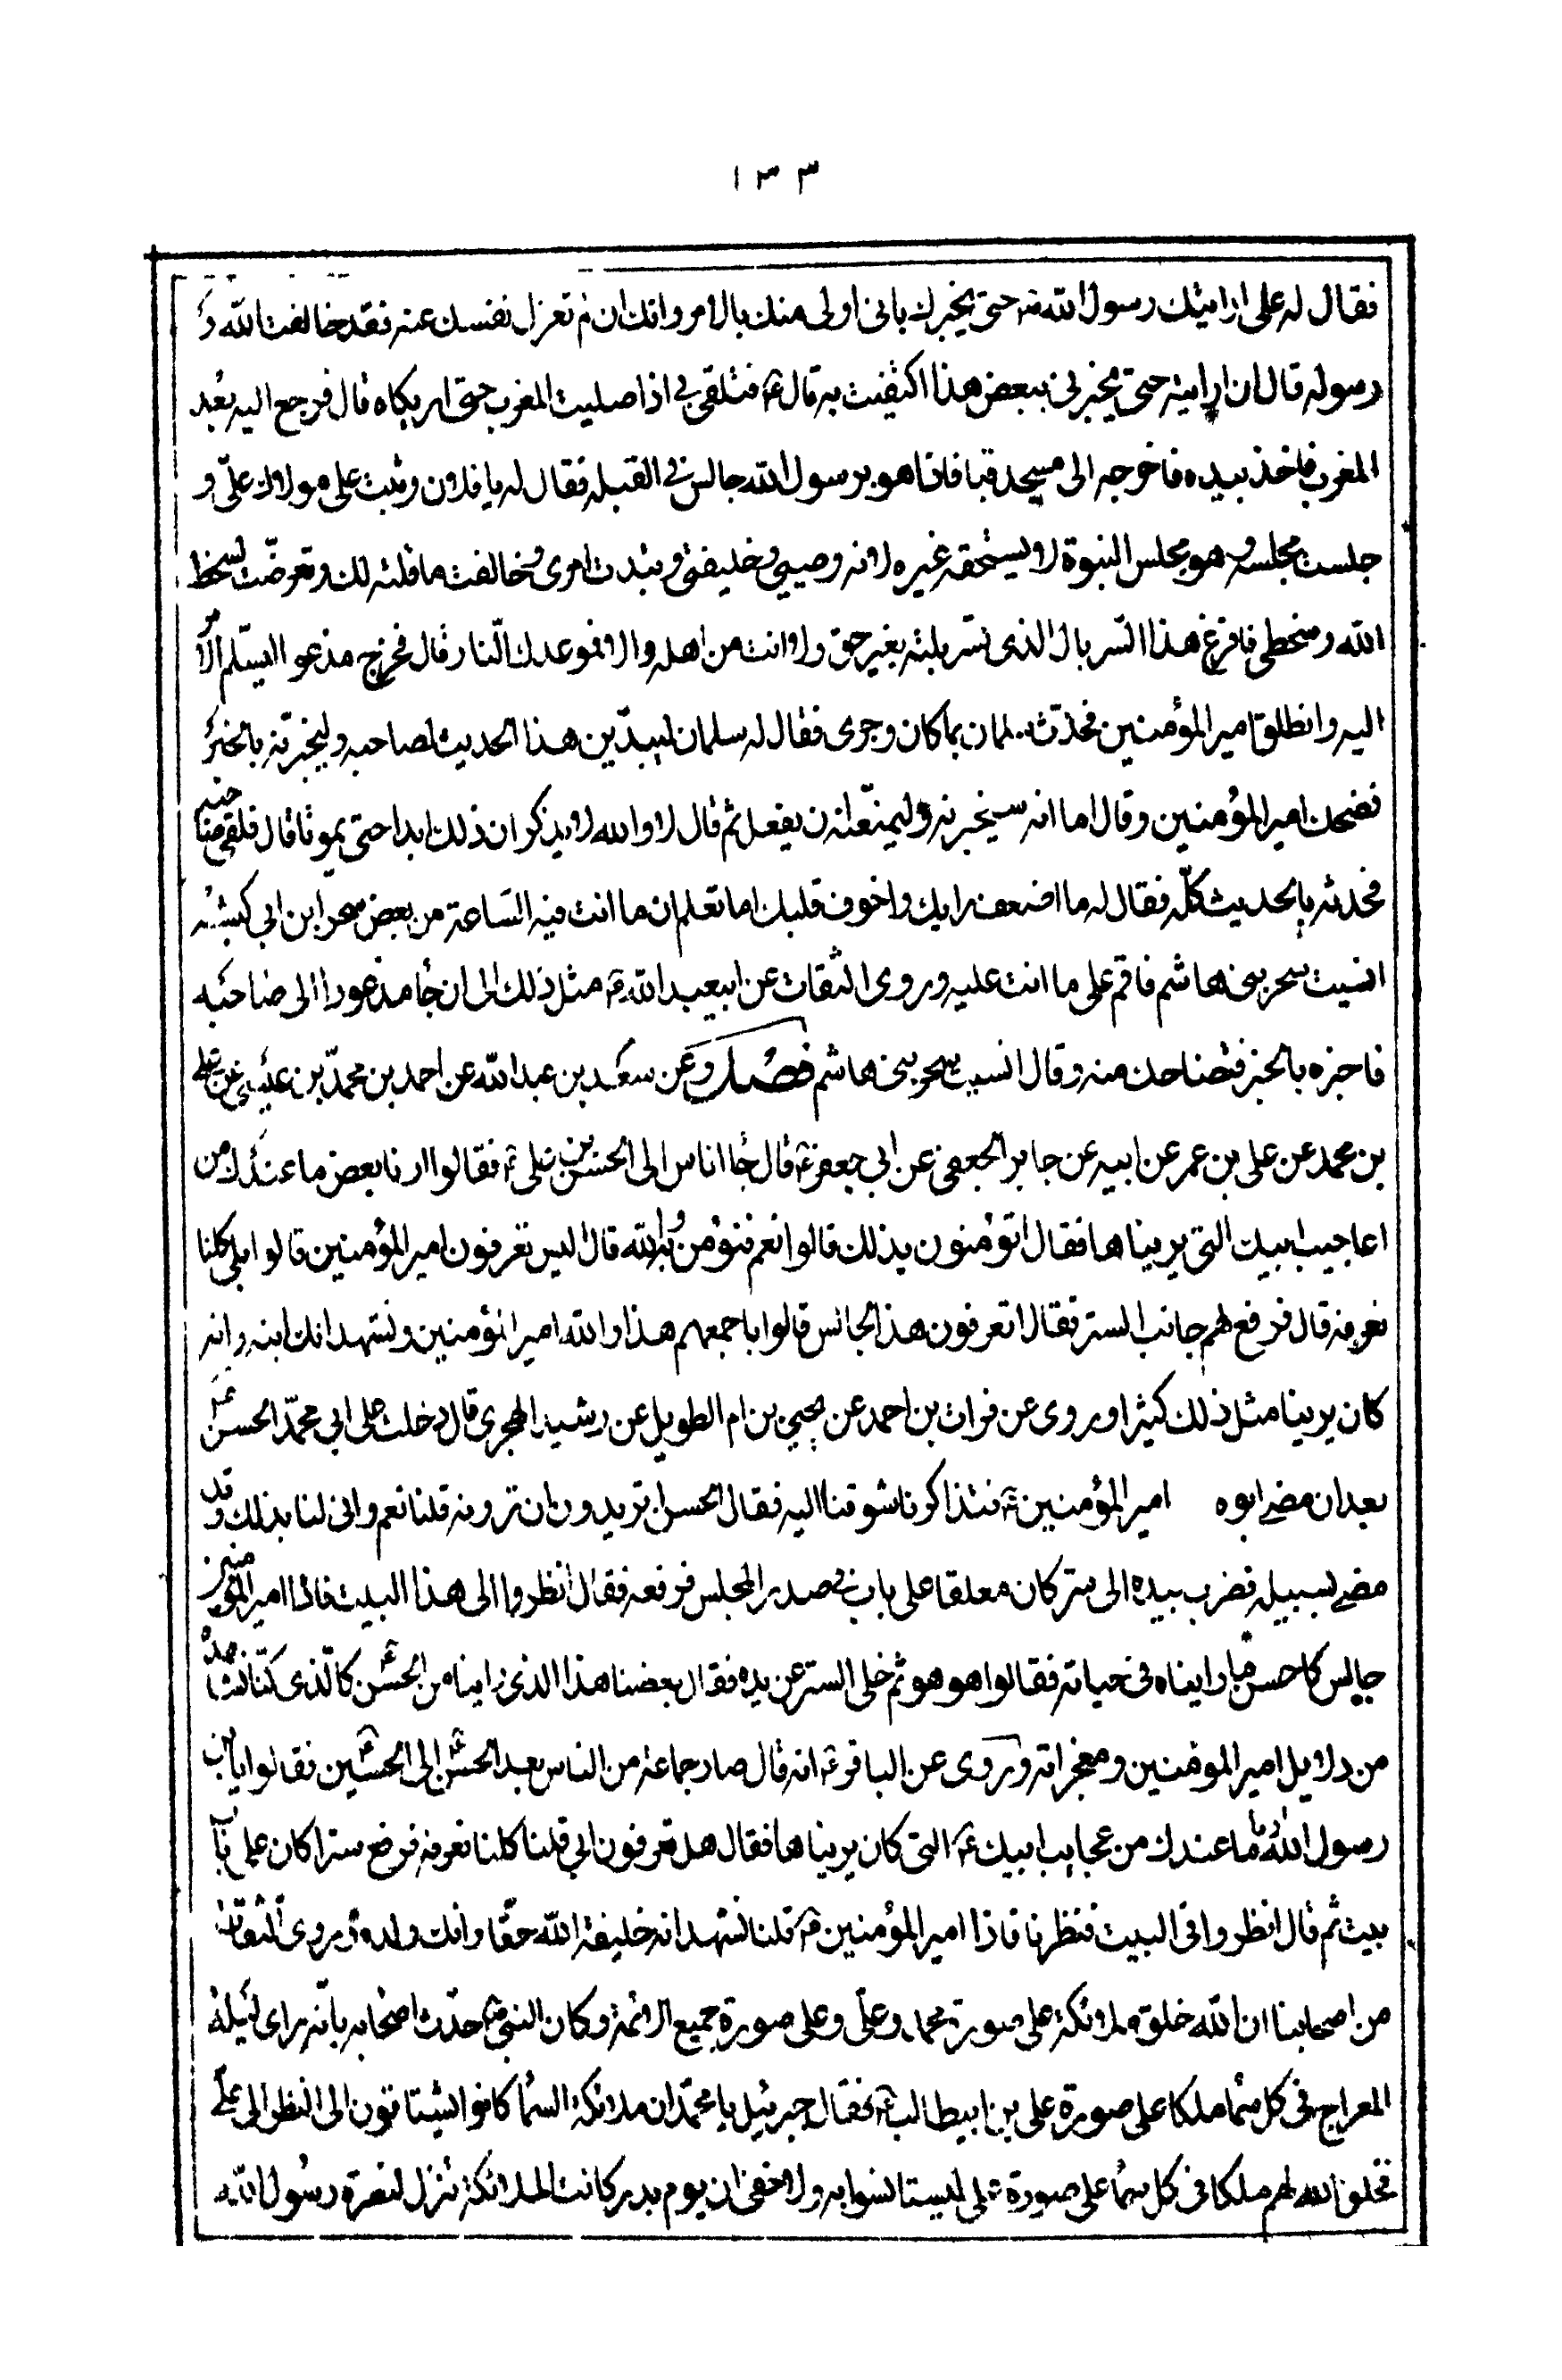 ١٣٣
فقال له على ان اريتك رسول الله ص حتى يخبرك بانى اولى منك بالامر وانك ان لم تعزل نفسك عنه فقد خالفت الله و
رسوله قال ان اراينه حتى يخبرنى ببعض هذا اكتفيت به قال ع فتلقى بى اذا صليت المغرب حتى اريكاه قال فرجع اليه بعد
المغرب فاخذ بيده فاخرجه الى مسجد قبا فاذا هو برسول الله جالس فى القبله فقال له يا فلان وثبت على مولاك على و
جلست مجلسه وهو مجلس النبوة لا يستحقه غيره لانه وصيى وخليفتى ونبذت امرى وخالفت ما قلته لك وتعرضت لسخط
الله وسخطى فانزع هذا السربال الذى تسربلته بغير حق ولا انت من اهله والا فموعدك النار قال فخرج مذعورا ليسلم الامر
اليه وانطلق امير المؤمنين فحدث سلمان بما كان وجرى فقال له سلمان ليبدين هذا الحديث لصاحبه وليخبرنه بالخبر
فضحك امير المؤمنين وقال اما انه سيخبرنه وليمنعنه ان يفعل ثم قال لا والله لا يذكران ذلك ابدا حتى يموتا قال فلقى صاحبه
فحدثه بالحديث كله فقال له ما اضعف رايك واخوف قلبك اما تعلم ان ما انت فيه الساعة من بعض سحر ابن ابى كبشه
انسيت سحر بنى هاشم فاقم على ما انت عليه وروى الثقات عن ابيعبد الله ع مثل ذلك الى ان جا مذعورا الى صاحبه
فاخبره بالخبر فتضاحك منه وقال انسيت سحر بنى هاشم فصل وعن سعد بن عبد الله عن احمد بن محمد بن عيسى عن على
بن محمد عن على بن عمر عن ابيه عن جابر الجعفى عن ابى جعفر ع قال جا اناس الى الحسن بن على ع فقالوا ارنا بعض ما عندك من
اعاجيب ابيك التى يريناها فقال اتؤمنون بذلك قالوا نعم نؤمن والله قال اليس تعرفون امير المؤمنين قالوا بلى كلنا
نعرفه قال فرفع لهم جانب الستر فقال اتعرفون هذا الجالس قالوا باجمعهم هذا والله امير المؤمنين ونشهد انك ابنه وانه
كان يرينا مثل ذلك كثيرا وروى عن فرات بن احمد عن يحيى بن ام الطويل عن رشيد الهجرى قال دخلت على ابى محمد الحسن ع
بعد ان مضى ابوه امير المؤمنين ع فتذاكرنا شوقنا اليه فقال الحسن اتريدون ان ترونه قلنا نعم وانى لنا بذلك وقد
مضى لسبيله فضرب بيده الى ستر كان معلقا على باب فى صدر المجلس فرفعه فقال انظروا الى هذا البيت فاذا امير المؤمنين
جالس كاحسن ما رايناه فى حياته فقالوا هو هو ثم خلى الستر عن يده فقال بعضنا هذا الذى رايناه من الحسن ع كالذى كنا نشاهد
من دلايل امير المؤمنين ومعجزاته وروى عن الباقر ع انه قال صار جماعة من الناس بعد الحسن الى الحسين فقالوا يابن
رسول الله ما عندك من عجايب ابيك ع التى كان يريناها فقال هل تعرفون ابى قلنا كلنا نعرفه فرفع سترا كان على باب
بيت ثم قال انظروا فى البيت فنظرنا فاذا امير المؤمنين ع قلنا نشهد انه خليفة الله حقا وانك ولده وروى الثقات
من اصحابنا ان الله خلق ملائكة على صورة محمد وعلى وعلى صورة جميع الائمة وكان النبى ص حدث اصحابه بانه راى ليلة
المعراج فى كل سما ملكا على صورة على بن ابيطالب ع فقال جبرئيل يا محمد ان ملائكة السما كانوا يشتاقون الى النظر الى على
فخلق الله لهم ملكا فى كل سما على صورة على ليستانسوا به ولا خفى ان يوم بدر كانت الملائكة تنزل لنصرة رسول الله